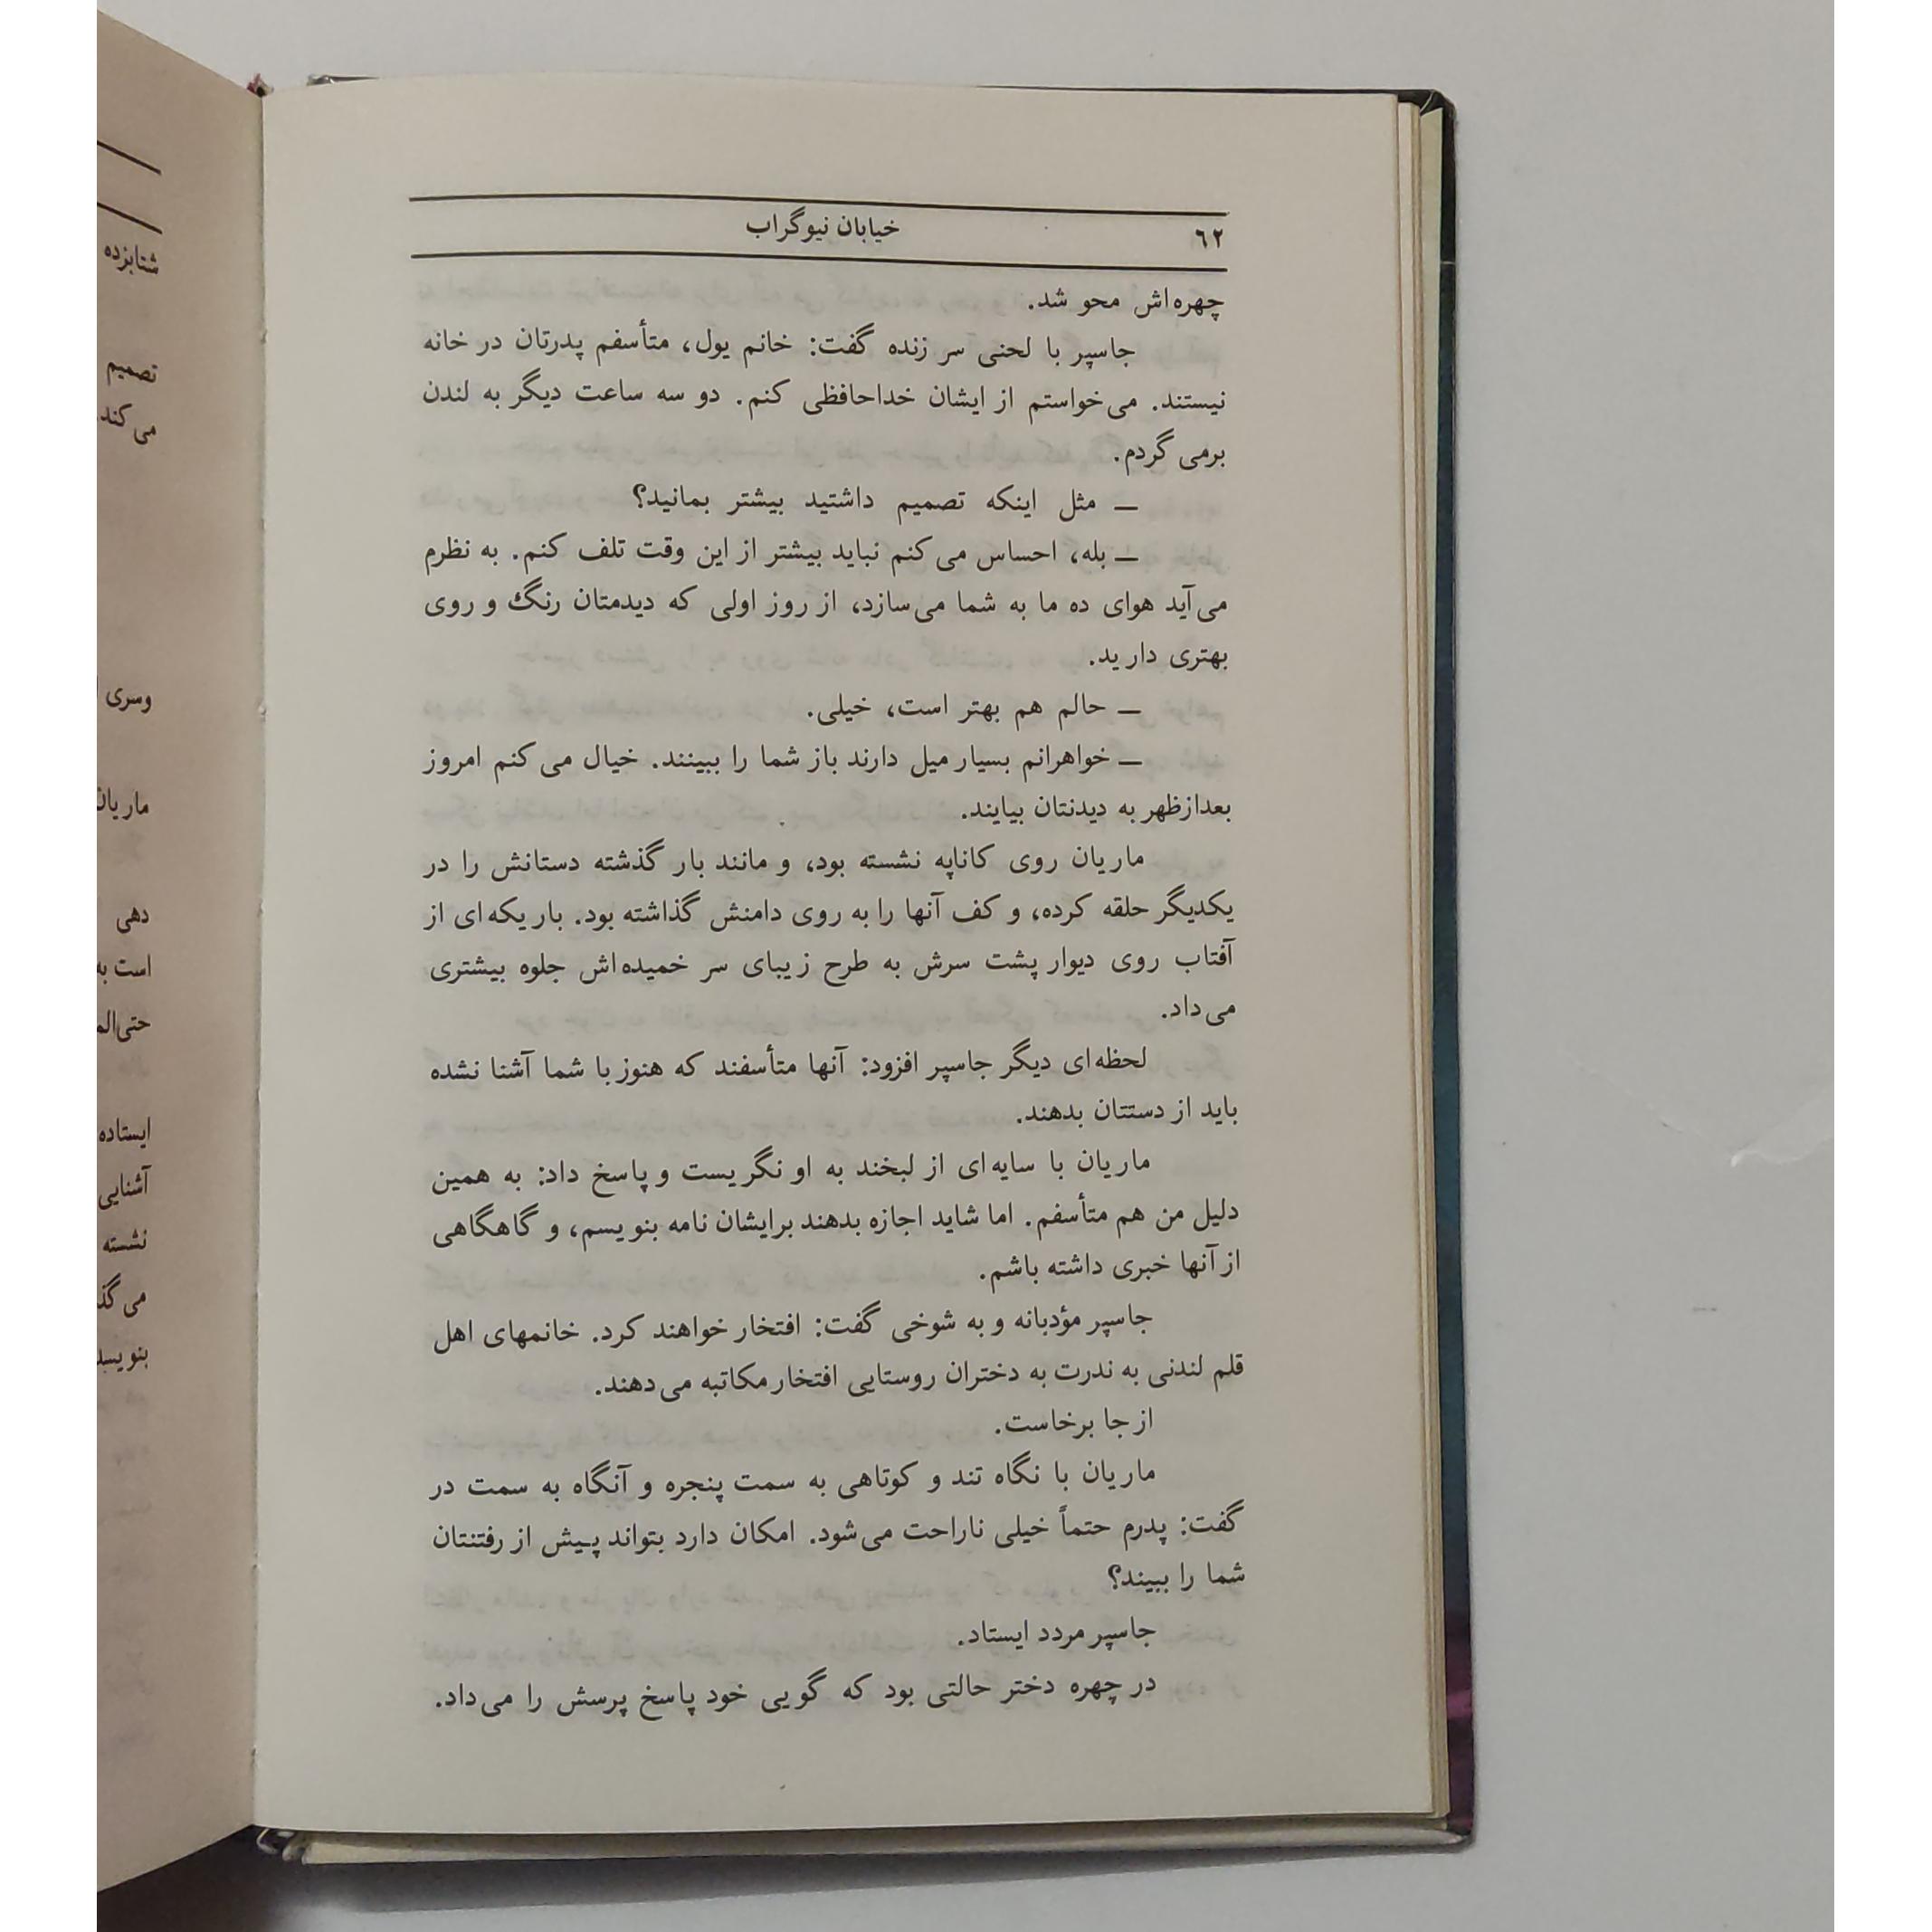 ۶۲
خیابان نیوگراب
چهره‌اش محو شد.
جاسپر با لحنی سر زنده گفت: خانم یول، متأسفم پدرتان در خانه
نیستند. می‌خواستم از ایشان خداحافظی کنم. دو سه ساعت دیگر به لندن
برمی‌گردم.
ـ مثل اینکه تصمیم داشتید بیشتر بمانید؟
ـ بله، احساس می‌کنم نباید بیشتر از این وقت تلف کنم. به نظرم
می‌آید هوای ده ما به شما می‌سازد، از روز اولی که دیدمتان رنگ و روی
بهتری دارید.
ـ حالم هم بهتر است، خیلی.
ـ خواهرانم بسیار میل دارند باز شما را ببینند. خیال می‌کنم امروز
بعدازظهر به دیدنتان بیایند.
ماریان روی کاناپه نشسته بود، و مانند بار گذشته دستانش را در
یکدیگر حلقه کرده، و کف آنها را به روی دامنش گذاشته بود. باریکه‌ای از
آفتاب روی دیوار پشت سرش به طرح زیبای سر خمیده‌اش جلوه بیشتری
می‌داد.
لحظه‌ای دیگر جاسپر افزود: آنها متأسفند که هنوز با شما آشنا نشده
باید از دستتان بدهند.
ماریان با سایه‌ای از لبخند به او نگریست و پاسخ داد: به همین
دلیل من هم متأسفم. اما شاید اجازه بدهند برایشان نامه بنویسم، و گاهگاهی
از آنها خبری داشته باشم.
جاسپر مؤدبانه و به شوخی گفت: افتخار خواهند کرد. خانمهای اهل
قلم لندنی به ندرت به دختران روستایی افتخار مکاتبه می‌دهند.
از جا برخاست.
ماریان با نگاه تند و کوتاهی به سمت پنجره و آنگاه به سمت در
گفت: پدرم حتماً خیلی ناراحت می‌شود. امکان دارد بتواند پیش از رفتنتان
شما را ببیند؟
جاسپر مردد ایستاد.
در چهره دختر حالتی بود که گویی خود پاسخ پرسش را می‌داد.
شتابزده
تصمیم
می‌کند
وسری
ماریان
دهی
است به
ایستاده
آشنایی
نشسته